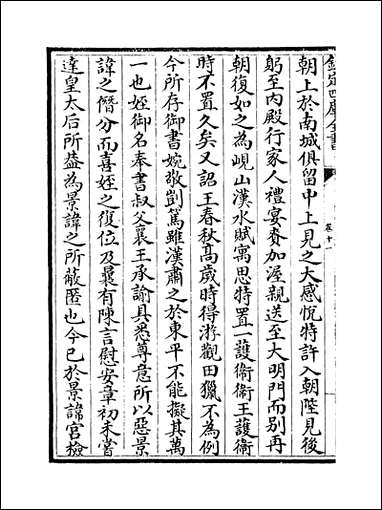 欽定四庫全書
卷十一
朝上於南城俱留中上見之大感悅特許入朝陛見後
躬至内殿行家人禮宴賚加渥親送至大明門而别再
朝復如之為峴山漢水賦寓思特置一護衛衛王護衛
時不置久矣又詔王春秋髙歲時得游觀田獵不為例
今所存御書婉敬剴篤雖漢肅之於東平不能擬其萬
一也姪御名奉書叔父襄王承諭具悉尊意所以惡景
諱之僭分而喜姪之復位及曩有陳言慰安章初未嘗
達皇太后所葢為景諱之所蔽匿也今已於景諱宫檢